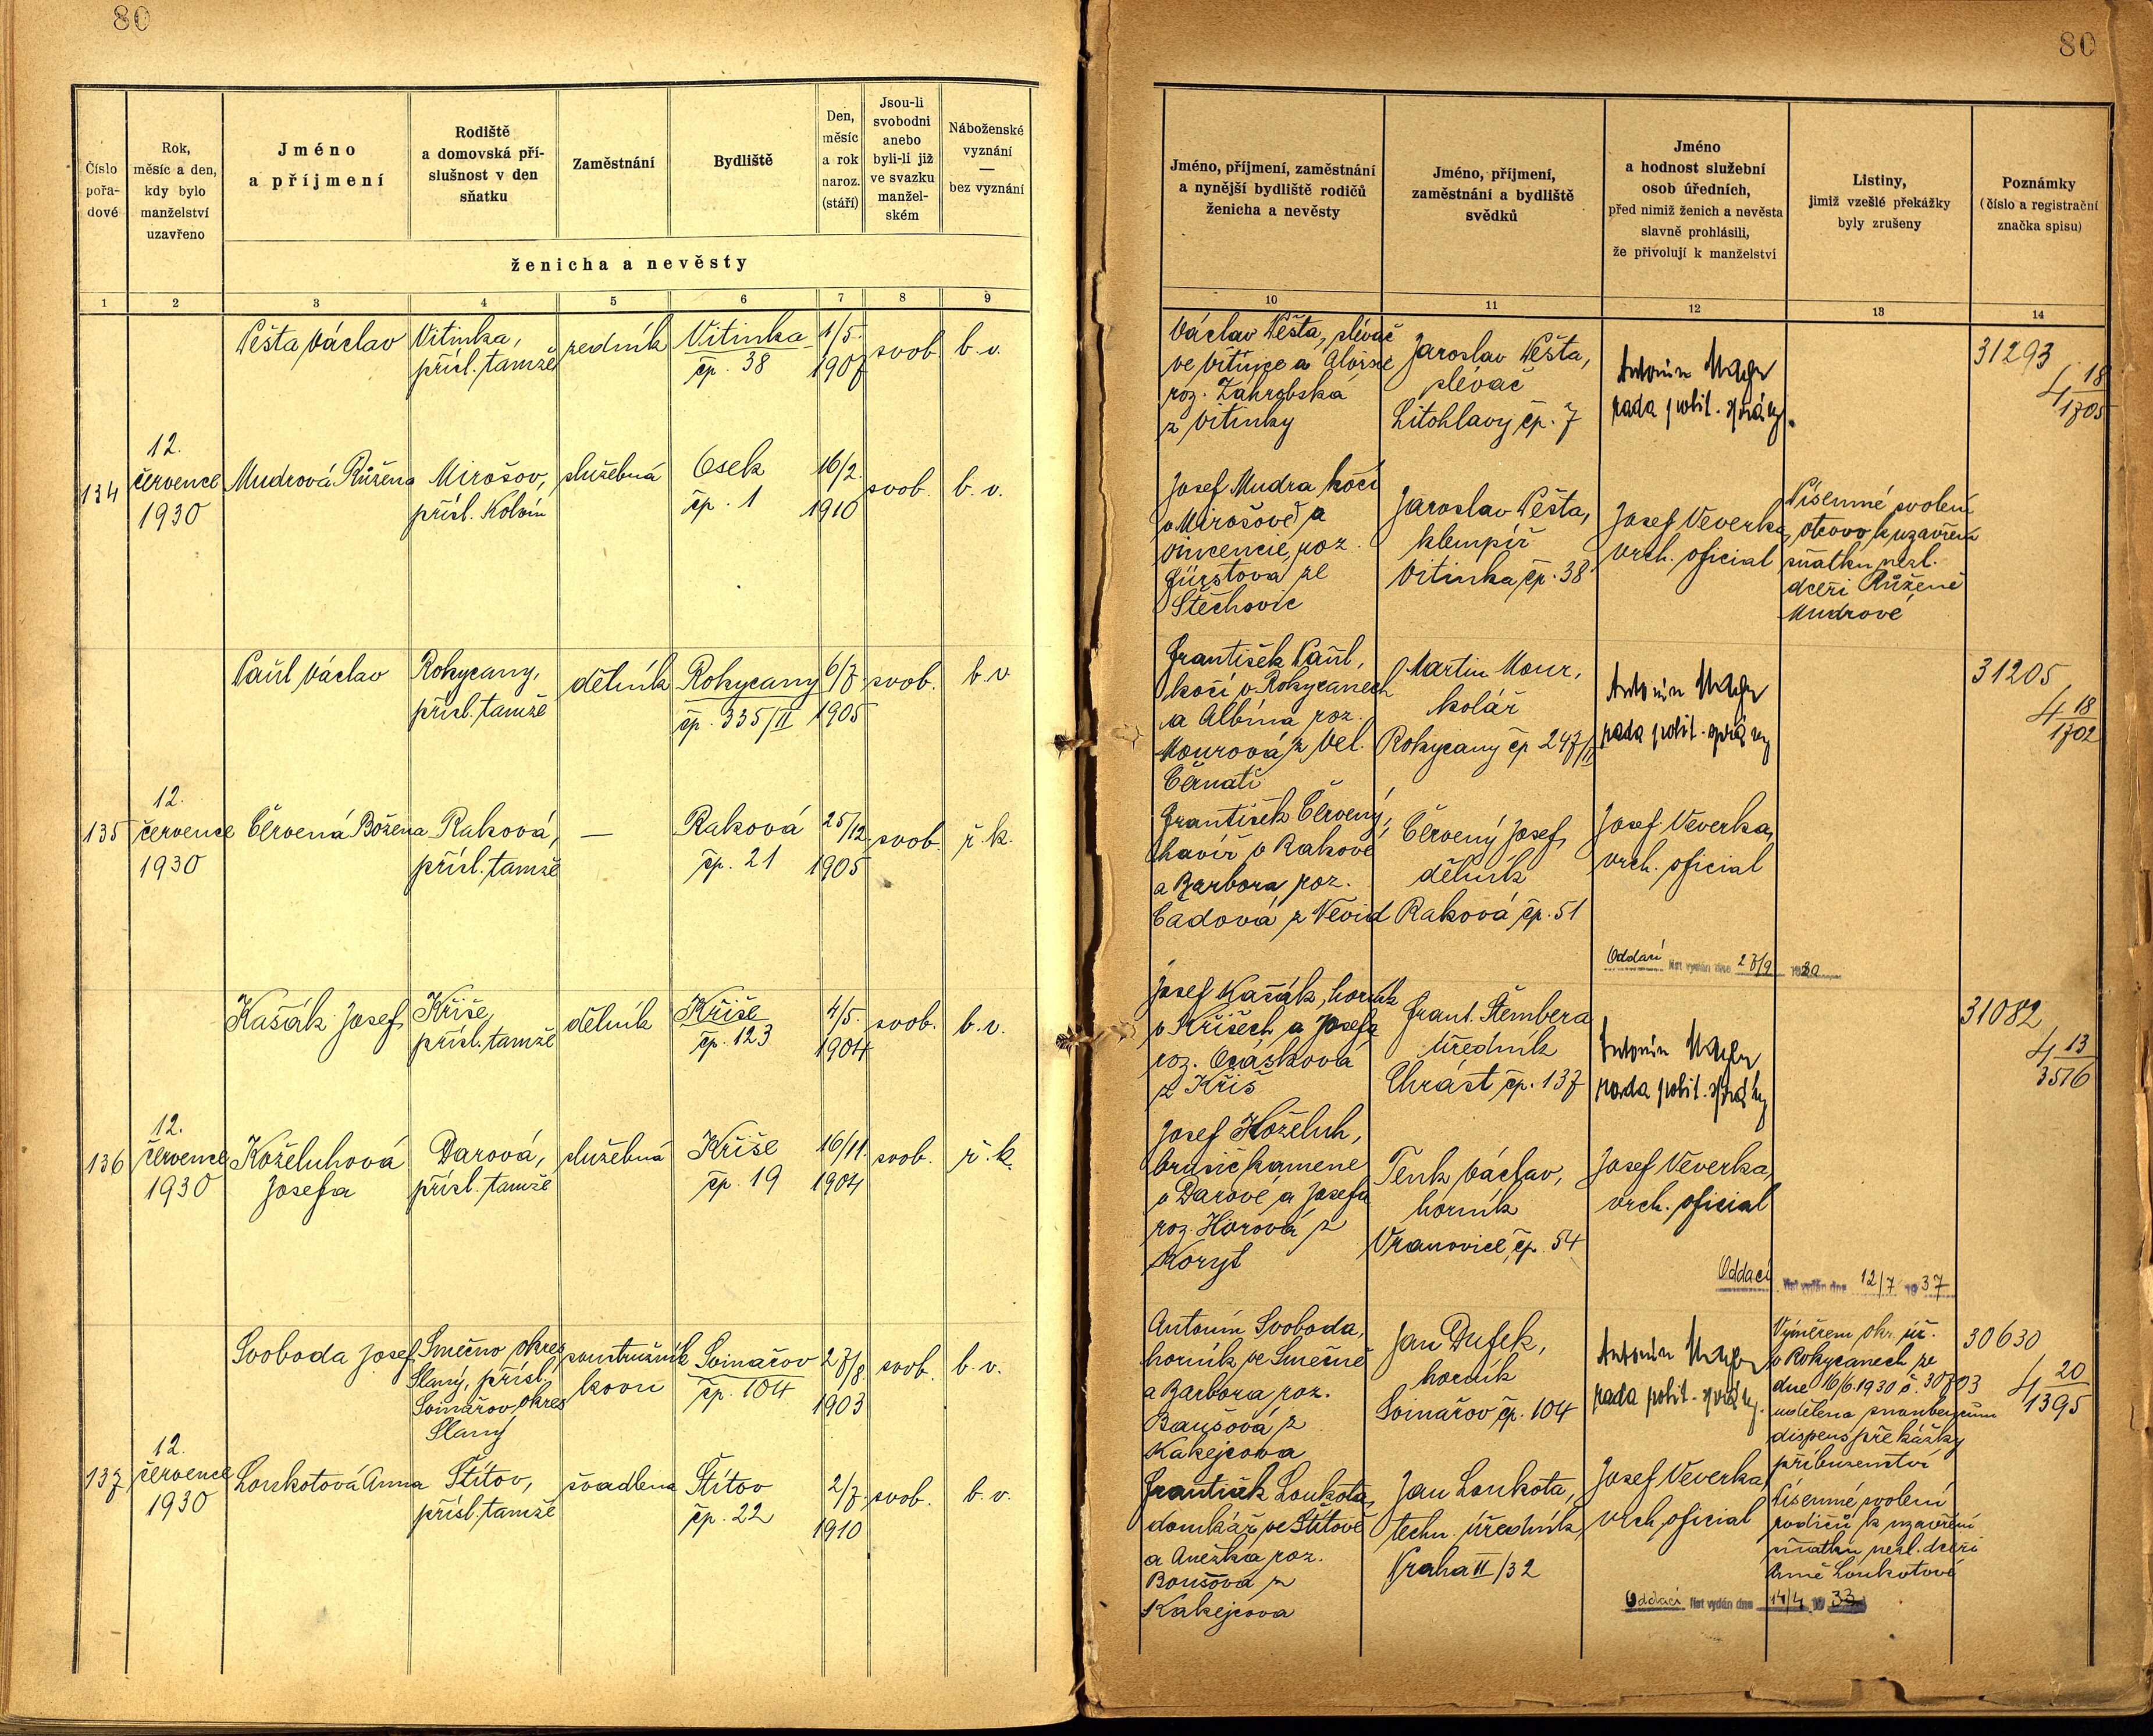 80
80
Číslo pořadové
Rok, měsíc a den, kdy bylo manželství uzavřeno
Jméno a příjmení
Rodiště a domovská příslušnost v den sňatku
Zaměstnání
Bydliště
Den, měsíc a rok naroz. (stáří)
Jsou-li svobodni anebo byli-li již ve svazku manželském
Náboženské vyznání — bez vyznání
ženicha a nevěsty
Jméno, příjmení, zaměstnání a nynější bydliště rodičů ženicha a nevěsty
Jméno, příjmení, zaměstnání a bydliště svědků
Jméno a hodnost služební osob úředních, před nimiž ženich a nevěsta slavně prohlásili, že přivolují k manželství
Listiny, jimiž vzešlé překážky byly zrušeny
Poznámky (číslo a registrační značka spisu)
1 2 3 4 5 6 7 8 9
10 11 12 13 14
Pešta Václav
Vitinka,
přísl. tamže
zedník
Vitinka
čp. 38
1/5.
1907
svob.
b. v.
Václav Pešta, slévač
ve Vitince a Aloisie
roz. Záhrobská
z Vitinky
Jaroslav Pešta,
slévač
Litohlavy čp. 7
Antonín
rada polit. správy.
31293
4 18
1705
134
12.
července
1930
Mudrová Růžena
Mirošov,
přísl. Kolvín
služebná
Osek
čp. 1
16/2.
1910
svob.
b. v.
Josef Mudra kočí
v Mirošově a
Vincencie, roz.
Fürstová ze
Štěchovic
Jaroslav Pešta,
klempíř
Vitinka čp. 38
Josef Veverka,
vrch. oficial
Písemné svolení
otcovo k uzavření
sňatku nezl.
dceři Růženě
Mudrové
Paul Václav
Rokycany,
přísl. tamže
dělník
Rokycany
čp. 335/II
6/7.
1905
svob.
b. v
František Paul,
kočí v Rokycanech
a Albina roz.
Mourová z Vel.
Martin Mour,
kolář
Rokycany čp 247/II
Antonín
rada polit. správy
31205
4 18
1702
135
12.
července
1930
Červená Božena
Raková,
přísl. tamže
—
Raková
čp. 21
25/12
1905
svob.
ř. k.
František Červený,
havíř v Rakové
a Barbora roz.
Čadová z Nevid
Červený Josef,
dělník
Raková čp. 51
Josef Veverka,
vrch. oficial
Oddací list vydán dne 27/9 1930
Kašák Josef
Kříše,
přísl. tamže
dělník
Kříše
čp. 123
4/5.
1904
svob.
b. v.
Josef Kašák, horník
v Kříšech a Josefa
roz. Ocásková
z Kříš
Frant. Štembera
úředník
Chrást čp. 137
Antonín
rada polit. správy
31082
4 13
3576
136
12.
července
1930
Koželuhová
Josefa
Darová,
přísl. tamže
služebná
Kříše
čp. 19
16/11.
1904
svob.
ř. k.
Josef Koželuh,
brusič kamene
v Darové a Josefa
roz. Horová z
Koryt
Tenk Václav,
horník
Vranovice, čp. 54
Josef Veverka,
vrch. oficial
Oddací list vydán dne 12/7 1937
Svoboda Josef
Smečno okres
Slaný, přísl.
Svinařov, okres
Slaný
soustružník
kovu
Svinařov
čp. 104
27/8
1903
svob.
b. v.
Antonín Svoboda,
horník ve Smečně
a Barbora roz.
Baušová z
Kakejcova
Jan Dufek,
horník
Svinařov čp. 104
Antonín
rada polit. správy.
Výměrem okr. úř.
v Rokycanech ze
dne 16/6.1930 č. 30703
udělena snoubencům
dispens překážky
příbuzenství
30630
4 20
1395
137
12.
července
1930
Loukotová Anna
Štítov,
přísl. tamže
švadlena
Štítov
čp. 22
2/7.
1910
svob.
b. v.
František Loukota,
domkář ve Štítově
a Anežka roz.
Boušová z
Kakejcova
Jan Loukota,
techn. úředník,
Praha II/32
Josef Veverka,
vrch. oficial
Písemné svolení
rodičů k uzavření
sňatku nezl. dceři
Anně Loukotové
Oddací list vydán dne 14/4 1933